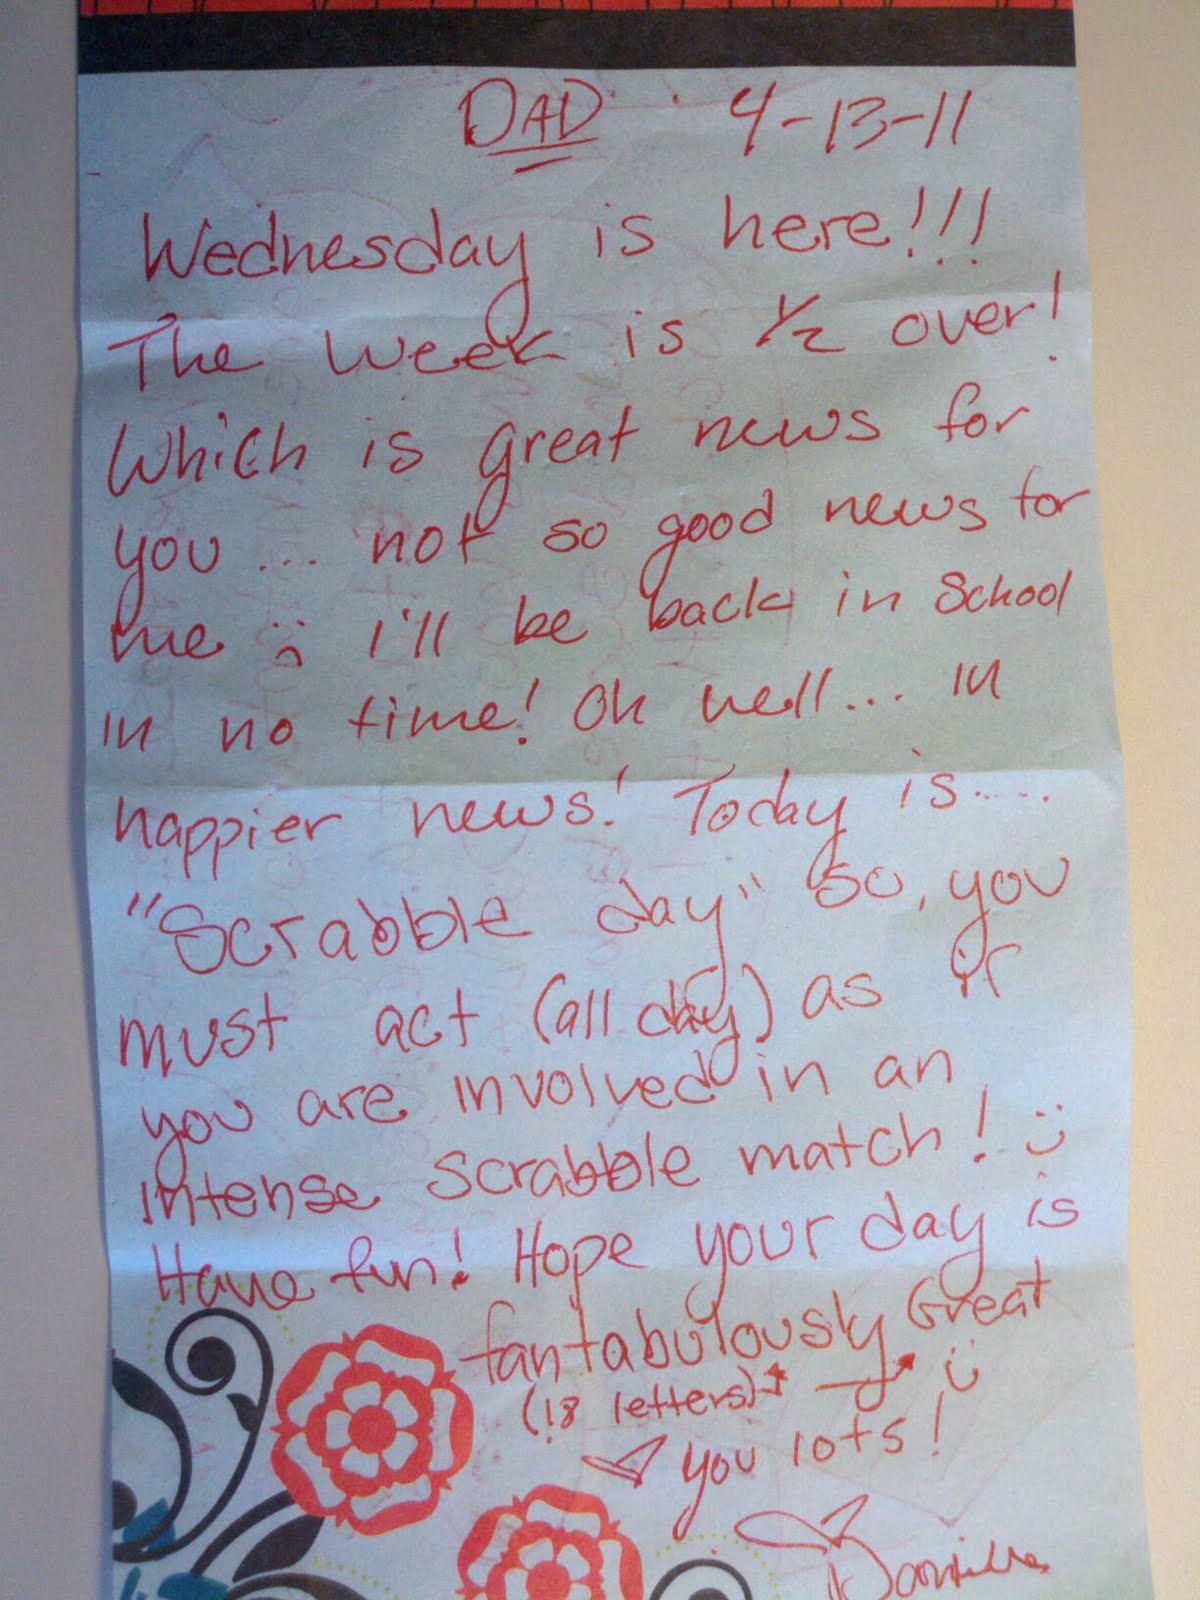 DAD 4-13-11
Wednesday is here!!!
The week is 1/2 over!
Which is great news for
you... not so good news for
me :( I'll be back in School
in no time! Oh well... in
happier news! Today is.....
"Scrabble day" so, you
must act (all day) as if
you are involved in an
intense scrabble match! :)
Have fun! Hope your day is
fantabulously Great
(18 letters)* → :)
♡ you lots!
♡ Danielle